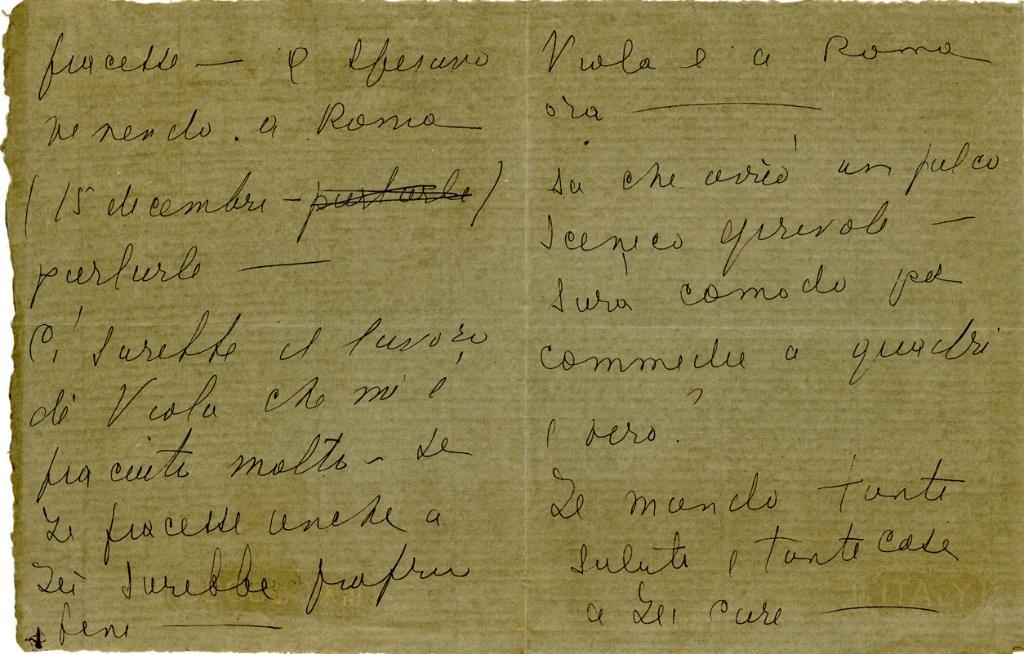 piacesse — e speravo
venendo. a Roma
(15 decembre - portarle)
portarle —
Ci sarebbe il lavoro
di Viola che mi è
piaciuto molto - Se
Le piacesse anche a
Lei sarebbe proprio
bene —
Viola è a Roma
ora —
So che avrò un palco
scenico girevole —
Sarà comodo per
commedie a quadri
è vero?
Le mando tante
salute e tante cose
a Lei care —
ITALY